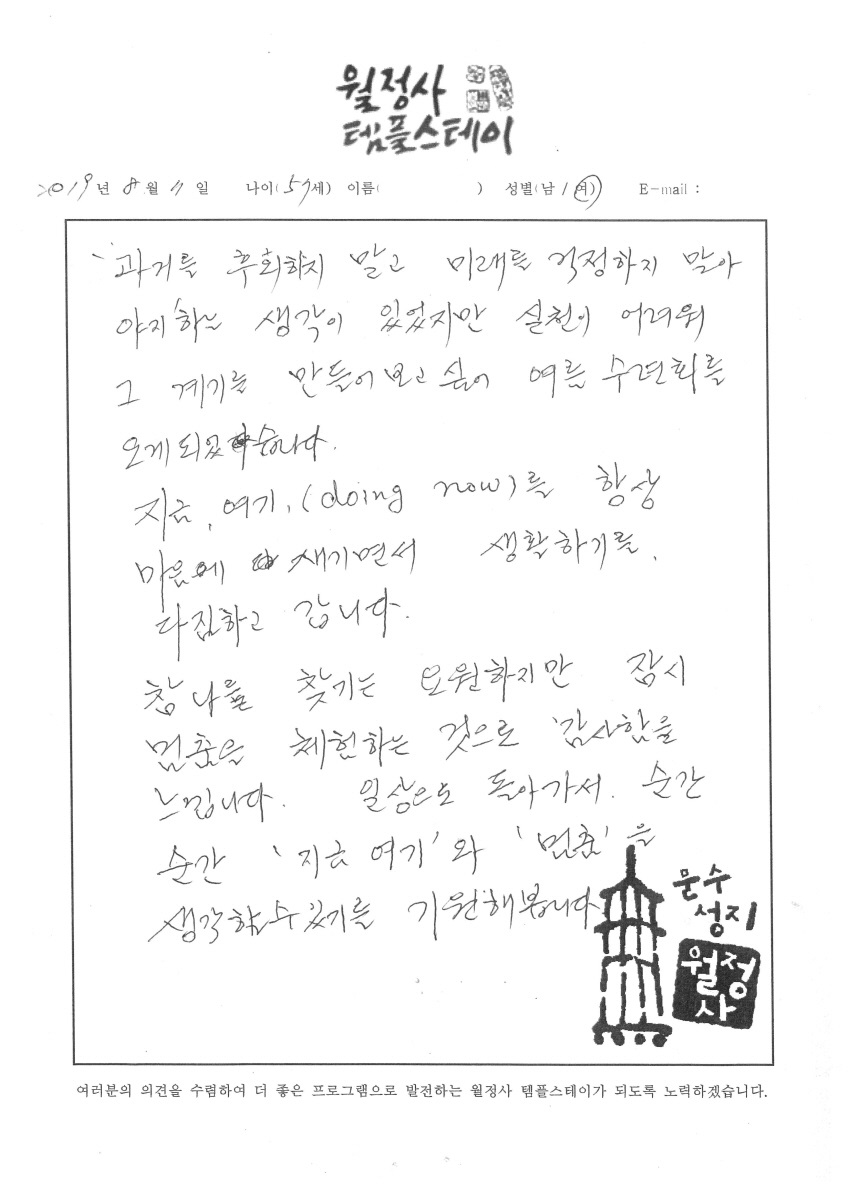 월정사
템플스테이
2019년 8월 11일 나이(57세) 이름( ) 성별(남/여) E-mail :
"과거를 후회하지 말고 미래를 걱정하지 말아
야지'하는 생각이 있었지만 실천이 어려워
그 계기를 만들어보고 싶어 여름 수련회를
오게되었습니다.
지금, 여기, (doing now)를 항상
마음에 새기면서 생활하기를,
다짐하고 갑니다.
참나를 찾기는 요원하지만 잠시
멈춤을 체험하는 것으로 감사함을
느낍니다. 일상으로 돌아가서. 순간
순간 '지금 여기'와 '멈춤'을
생각할수있기를 기원해봅니다
문수
성지
월정
사
여러분의 의견을 수렴하여 더 좋은 프로그램으로 발전하는 월정사 템플스테이가 되도록 노력하겠습니다.